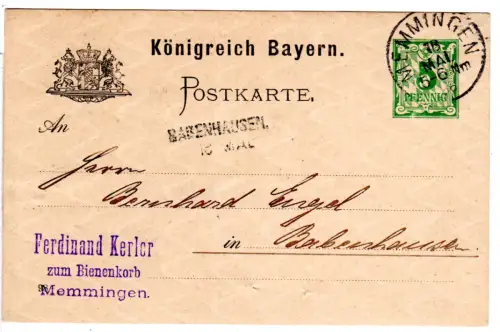 Königreich Bayern.
POSTKARTE.
MEMMINGEN
16
MAI
PFENNIG
An
BABENHAUSEN.
16 MAI
Herrn
Bernhard Engel
in Babenhausen.
Ferdinand Kerler
zum Bienenkorb
Memmingen.